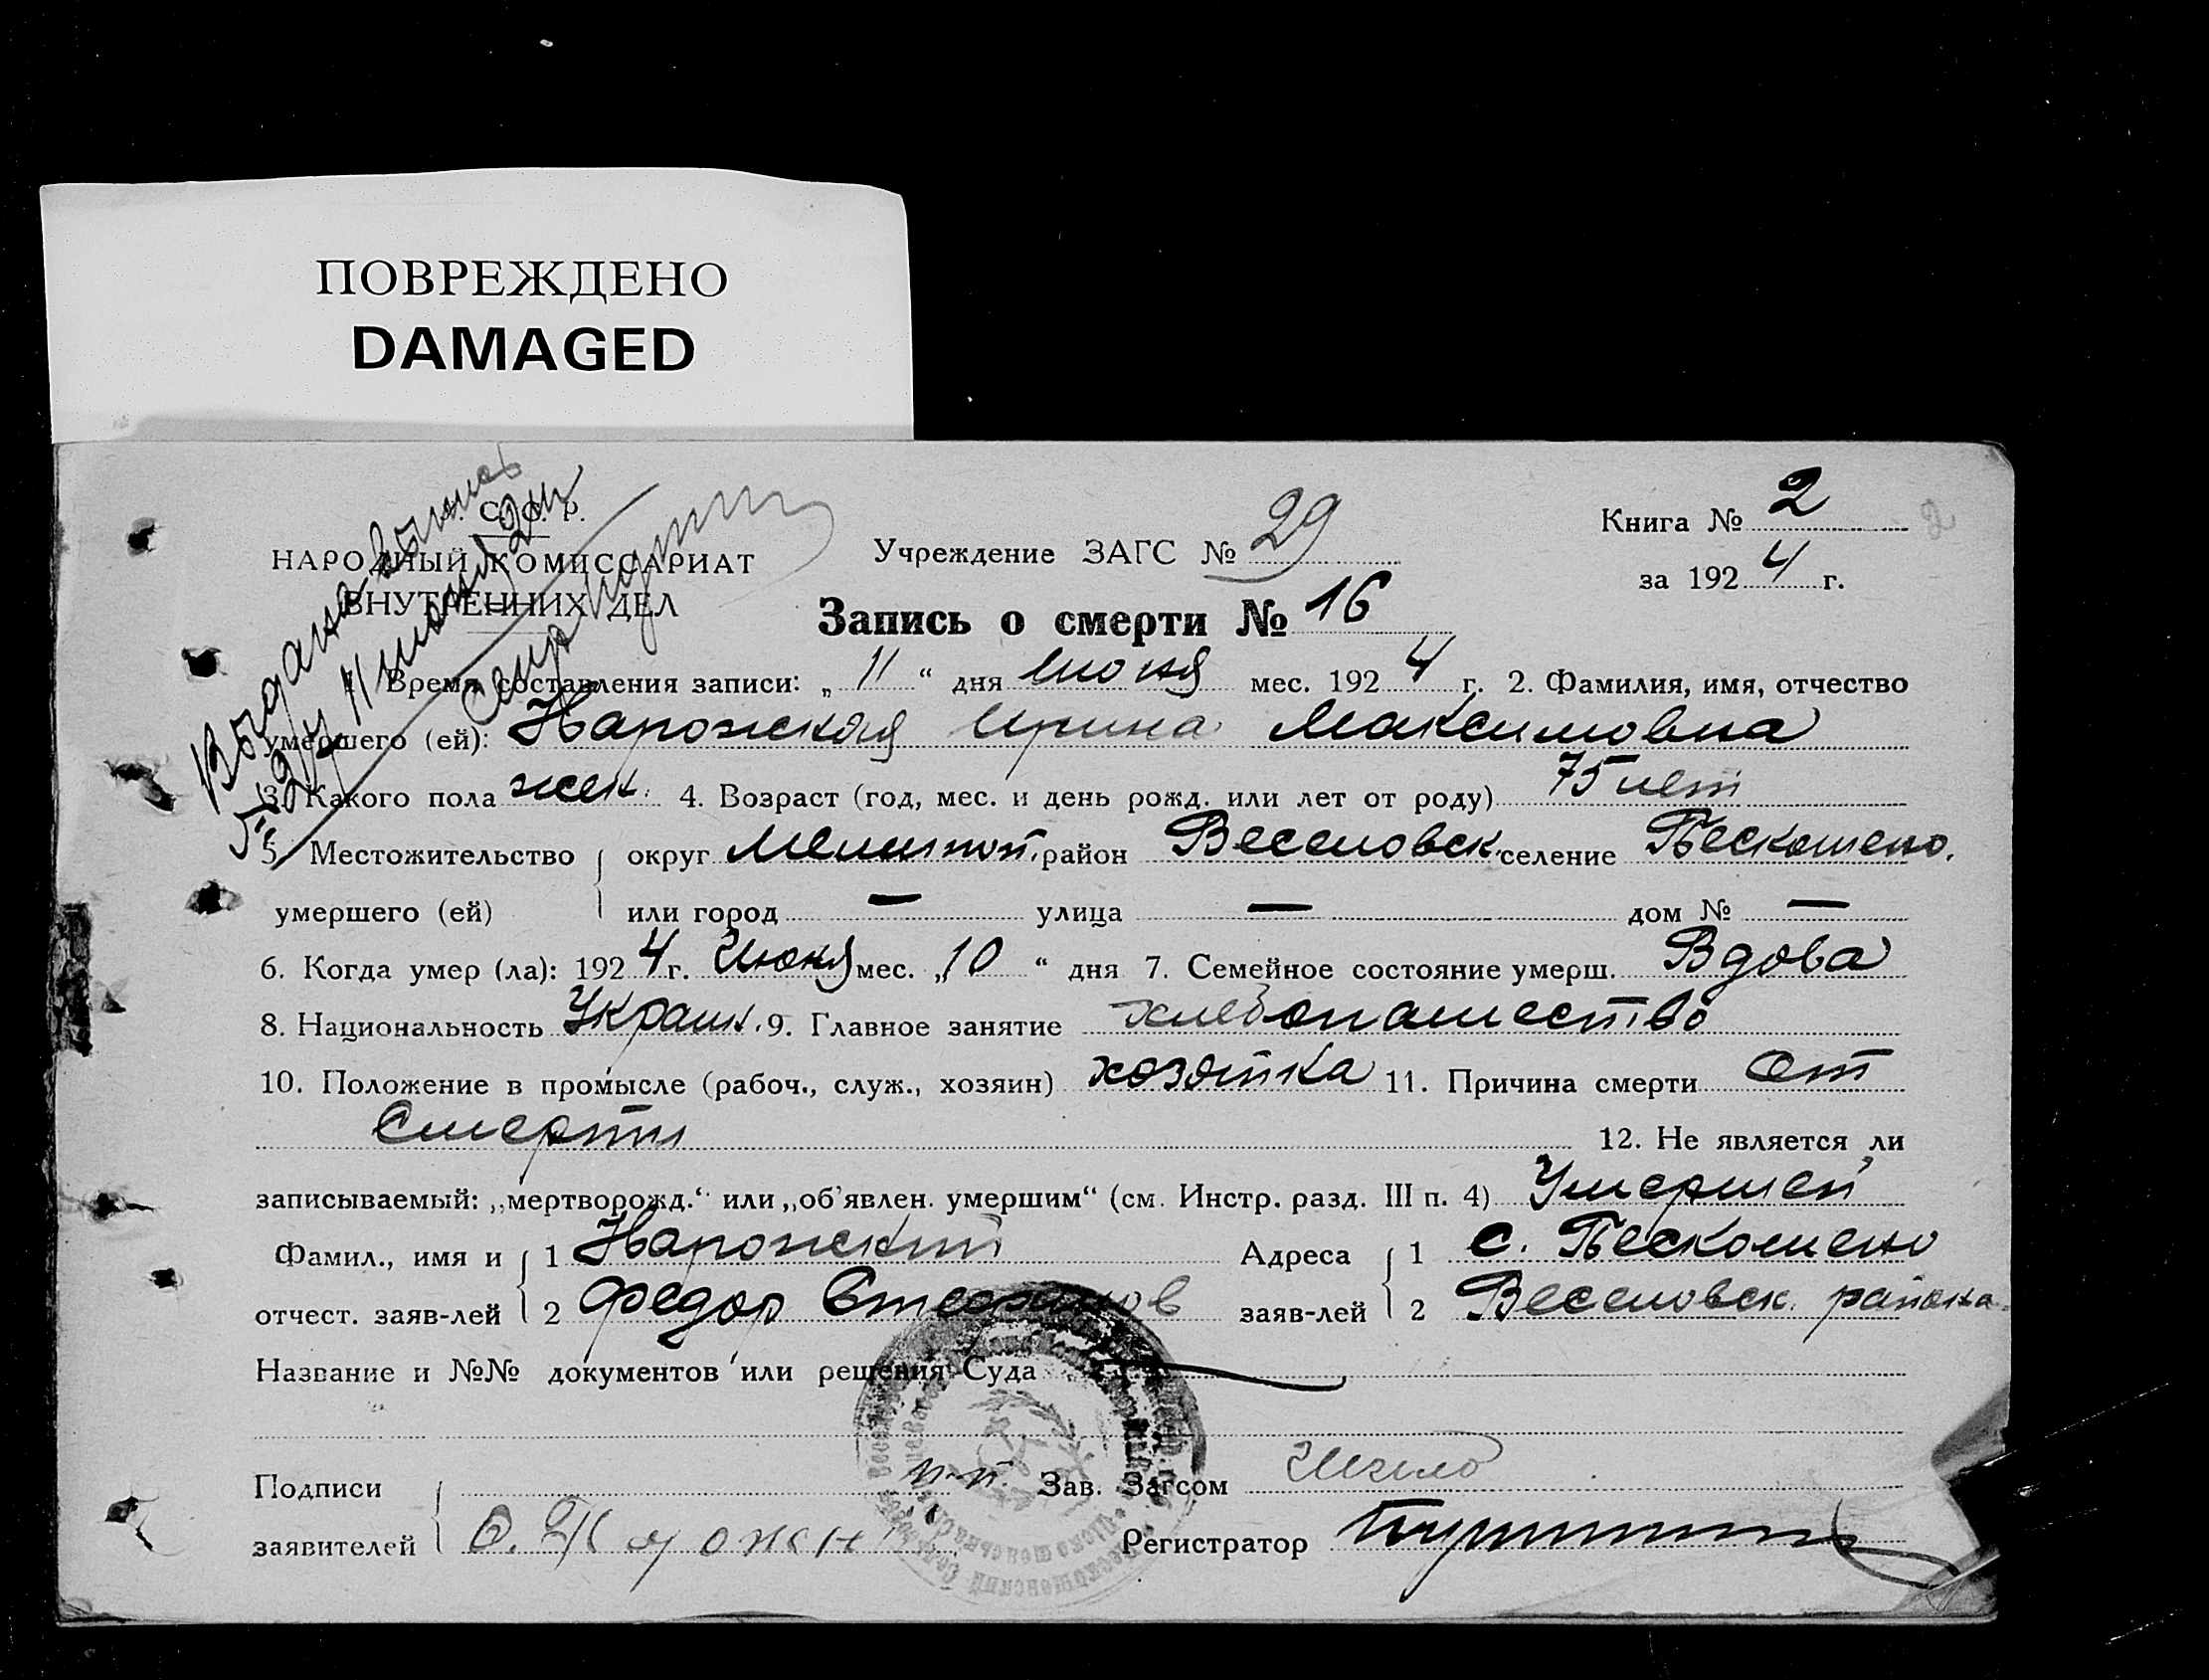 ПОВРЕЖДЕНО
DAMAGED
С. С. Р.
НАРОДНЫЙ КОМИССАРИАТ
ВНУТРЕННИХ ДЕЛ
Выдана выпись
11 июня 24
Учреждение ЗАГС № 29
Книга № 2
2
за 1924 г.
Запись о смерти № 16
1. Время составления записи: „11“ дня июня мес. 1924 г. 2. Фамилия, имя, отчество
умершего (ей): Нарожская Ирина Максимовна
3. Какого пола жен. 4. Возраст (год, мес. и день рожд. или лет от роду) 75 лет
5. Местожительство округ Мелитоп. район Веселовск. селение Пескошено.
умершего (ей) или город — улица — дом № —
6. Когда умер (ла): 1924 г. Июня мес. „10“ дня 7. Семейное состояние умерш. Вдова
8. Национальность Украин. 9. Главное занятие хлебопашество
10. Положение в промысле (рабоч., служ., хозяин) хозяйка 11. Причина смерти От
Смерти
12. Не является ли
записываемый: „мертворожд.“ или „об’явлен. умершим“ (см. Инстр. разд. III п. 4) Умершей
Фамил., имя и 1 Нарожский Адреса 1 с. Пескошено
отчест. заяв-лей 2 Федор Стефанов заяв-лей 2 Веселовск. района
Название и №№ документов или решения Суда
Подписи Зав. Загсом
заявителей Регистратор